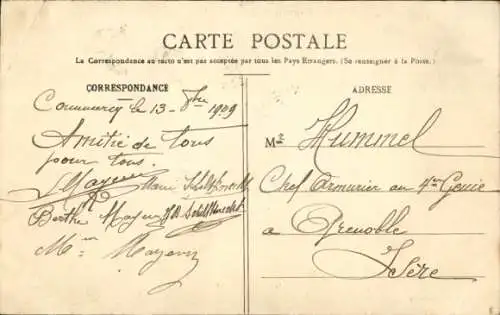 CARTE POSTALE
La Correspondance au recto n'est pas acceptée par tous les Pays Etrangers. (Se renseigner à la Poste.)
CORRESPONDANCE
Commercy le 13 - 8bre 1909
Amitié de tous
pour tous.
L Mayeur Marie
Berthe Mayeur
Mme Mayeur
ADRESSE
Mr Hummel
Chef armurier au 4me Génie
a Grenoble
Isère